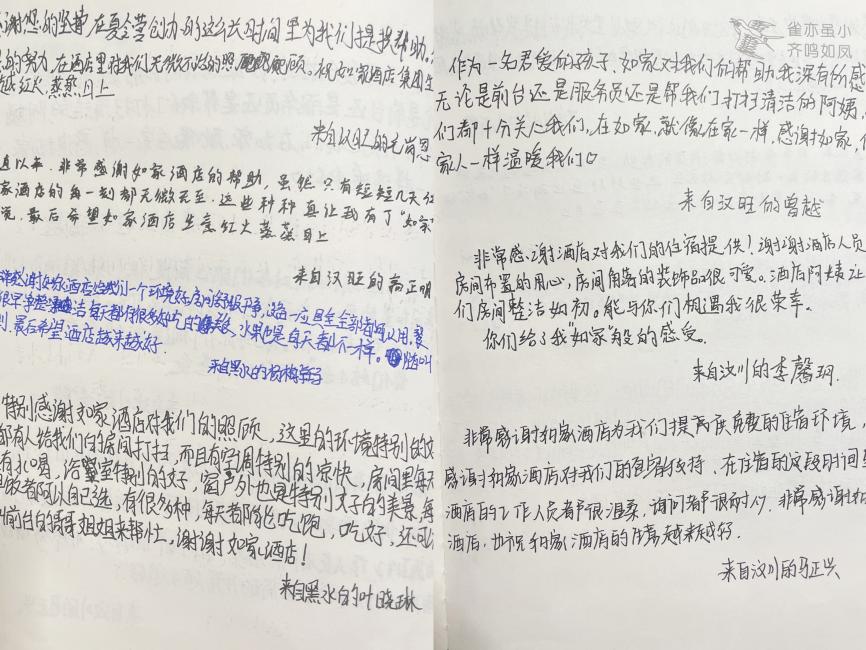 感谢您的坚守在夏令营创办的这么长时间里为我们提供帮助,
的努力,在酒店里对我们无微不至的照顾。祝如家酒店集团生
越红火,蒸蒸日上
来自汉旺的尚恩
以来,非常感谢如家酒店的帮助,虽然只有短短几天
家酒店的每一刻都无微不至,这些种种真让我有了“如家”
最后希望如家酒店生意红火蒸蒸日上
来自汉旺的高正明
非常感谢如家酒店给我们一个环境好房间舒服干净,洗浴一应具全全部都可以用,
很早就 每天都有很多好吃的 水果也是每天都不一样。 随叫
到,最后希望酒店越来越好
来自黑水的杨梅
特别感谢如家酒店对我们的照顾,这里的环境特别的好
都有人给我们的房间打扫,而且有空调特别的凉快,房间里每天
有 喝,浴室特别的好,窗户外也是特别好的美景,每
饭都可以自己选,有很多种,每天都能吃饱,吃好,还可以
叫前台的哥哥姐姐来帮忙,谢谢如家酒店!
来自黑水的叶晓琳
雀亦虽小
齐鸣如凤
作为一名君爱的孩子,如家对我们的帮助我深有的感
无论是前台还是服务员还是帮我们打扫清洁的阿姨,
们都十分关心我们,在如家,就像在家一样,感谢如家,
家人一样温暖我们♡
来自汉旺的曾越
非常感谢酒店对我们的住宿提供!谢谢酒店人员
房间布置的用心,房间角落的装饰品很可爱。酒店阿姨让
们房间整洁如初。能与你们相遇我很荣幸。
你们给了我“如家”般的感受。
来自汶川的李馨玥
非常感谢如家酒店为我们提高度免费的住宿环境,
感谢如家酒店对我们的包容与支持,在住宿的这段时间里
酒店的工作人员都很温柔,询问者都很耐心,非常感谢如
酒店,也祝如家酒店的生意越来越好。
来自汶川的马正兴